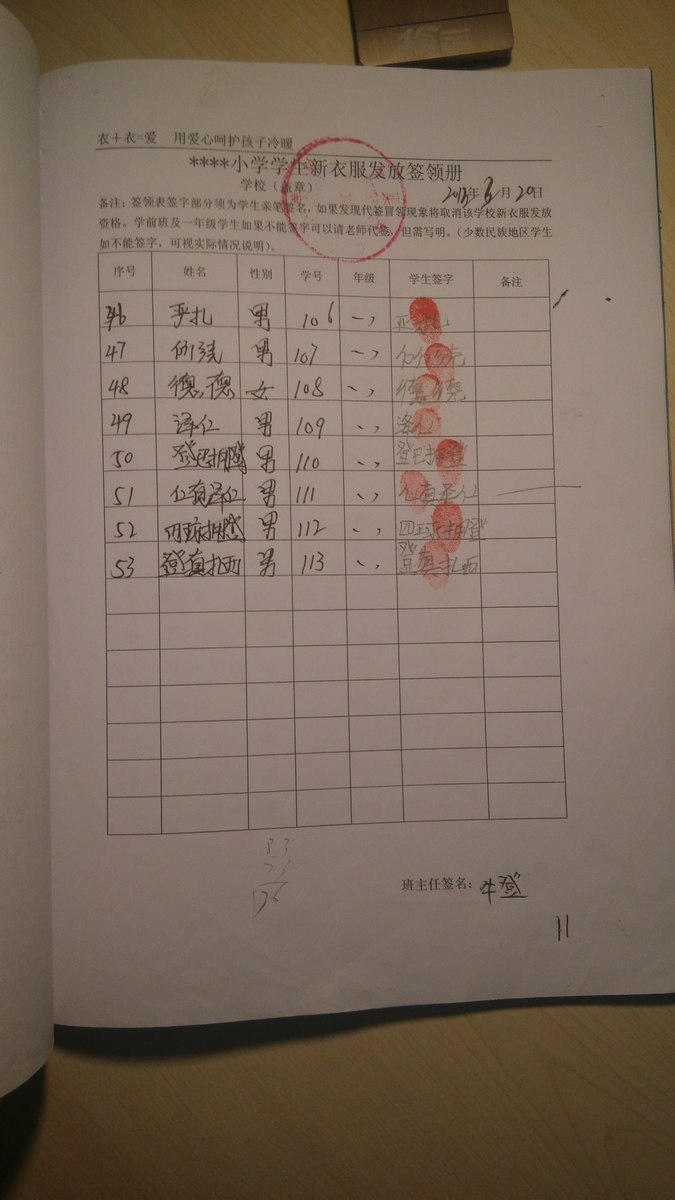 衣+衣=爱 用爱心呵护孩子冷暖
****小学学生新衣服发放签领册
学校（盖章） 2013年6月20日
备注：签领表签字部分须为学生亲笔签名，如果发现代签冒领现象将取消该学校新衣服发放
资格。学前班及一年级学生如果不能签字可以请老师代签，但需写明。（少数民族地区学生
如不能签字，可视实际情况说明）。
序号 姓名 性别 学号 年级 学生签字 备注
46 男 106 一，
47 男 107 一，
48 德德 女 108 一，
49 泽仁 男 109 一， 泽仁
50 登巴拥登 男 110 一， 登巴拥登
51 仁真泽仁 男 111 一， 仁真泽仁
52 四郎拥登 男 112 一， 四郎拥登
53 登真扎西 男 113 一， 登真扎西
83
班主任签名：牛登
11